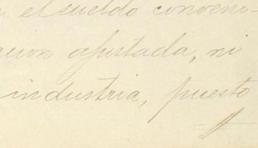 el sueldo conveni-
ajustada, ni
industria, puesto